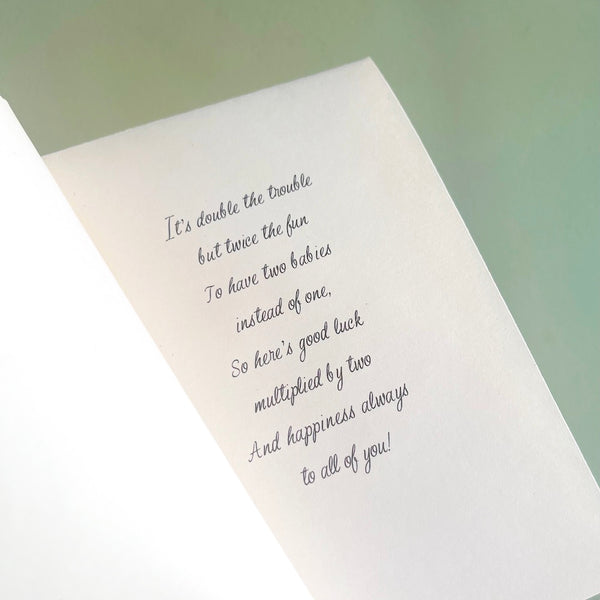 It's double the trouble
but twice the fun
To have two babies
instead of one,
So here's good luck
multiplied by two
And happiness always
to all of you!